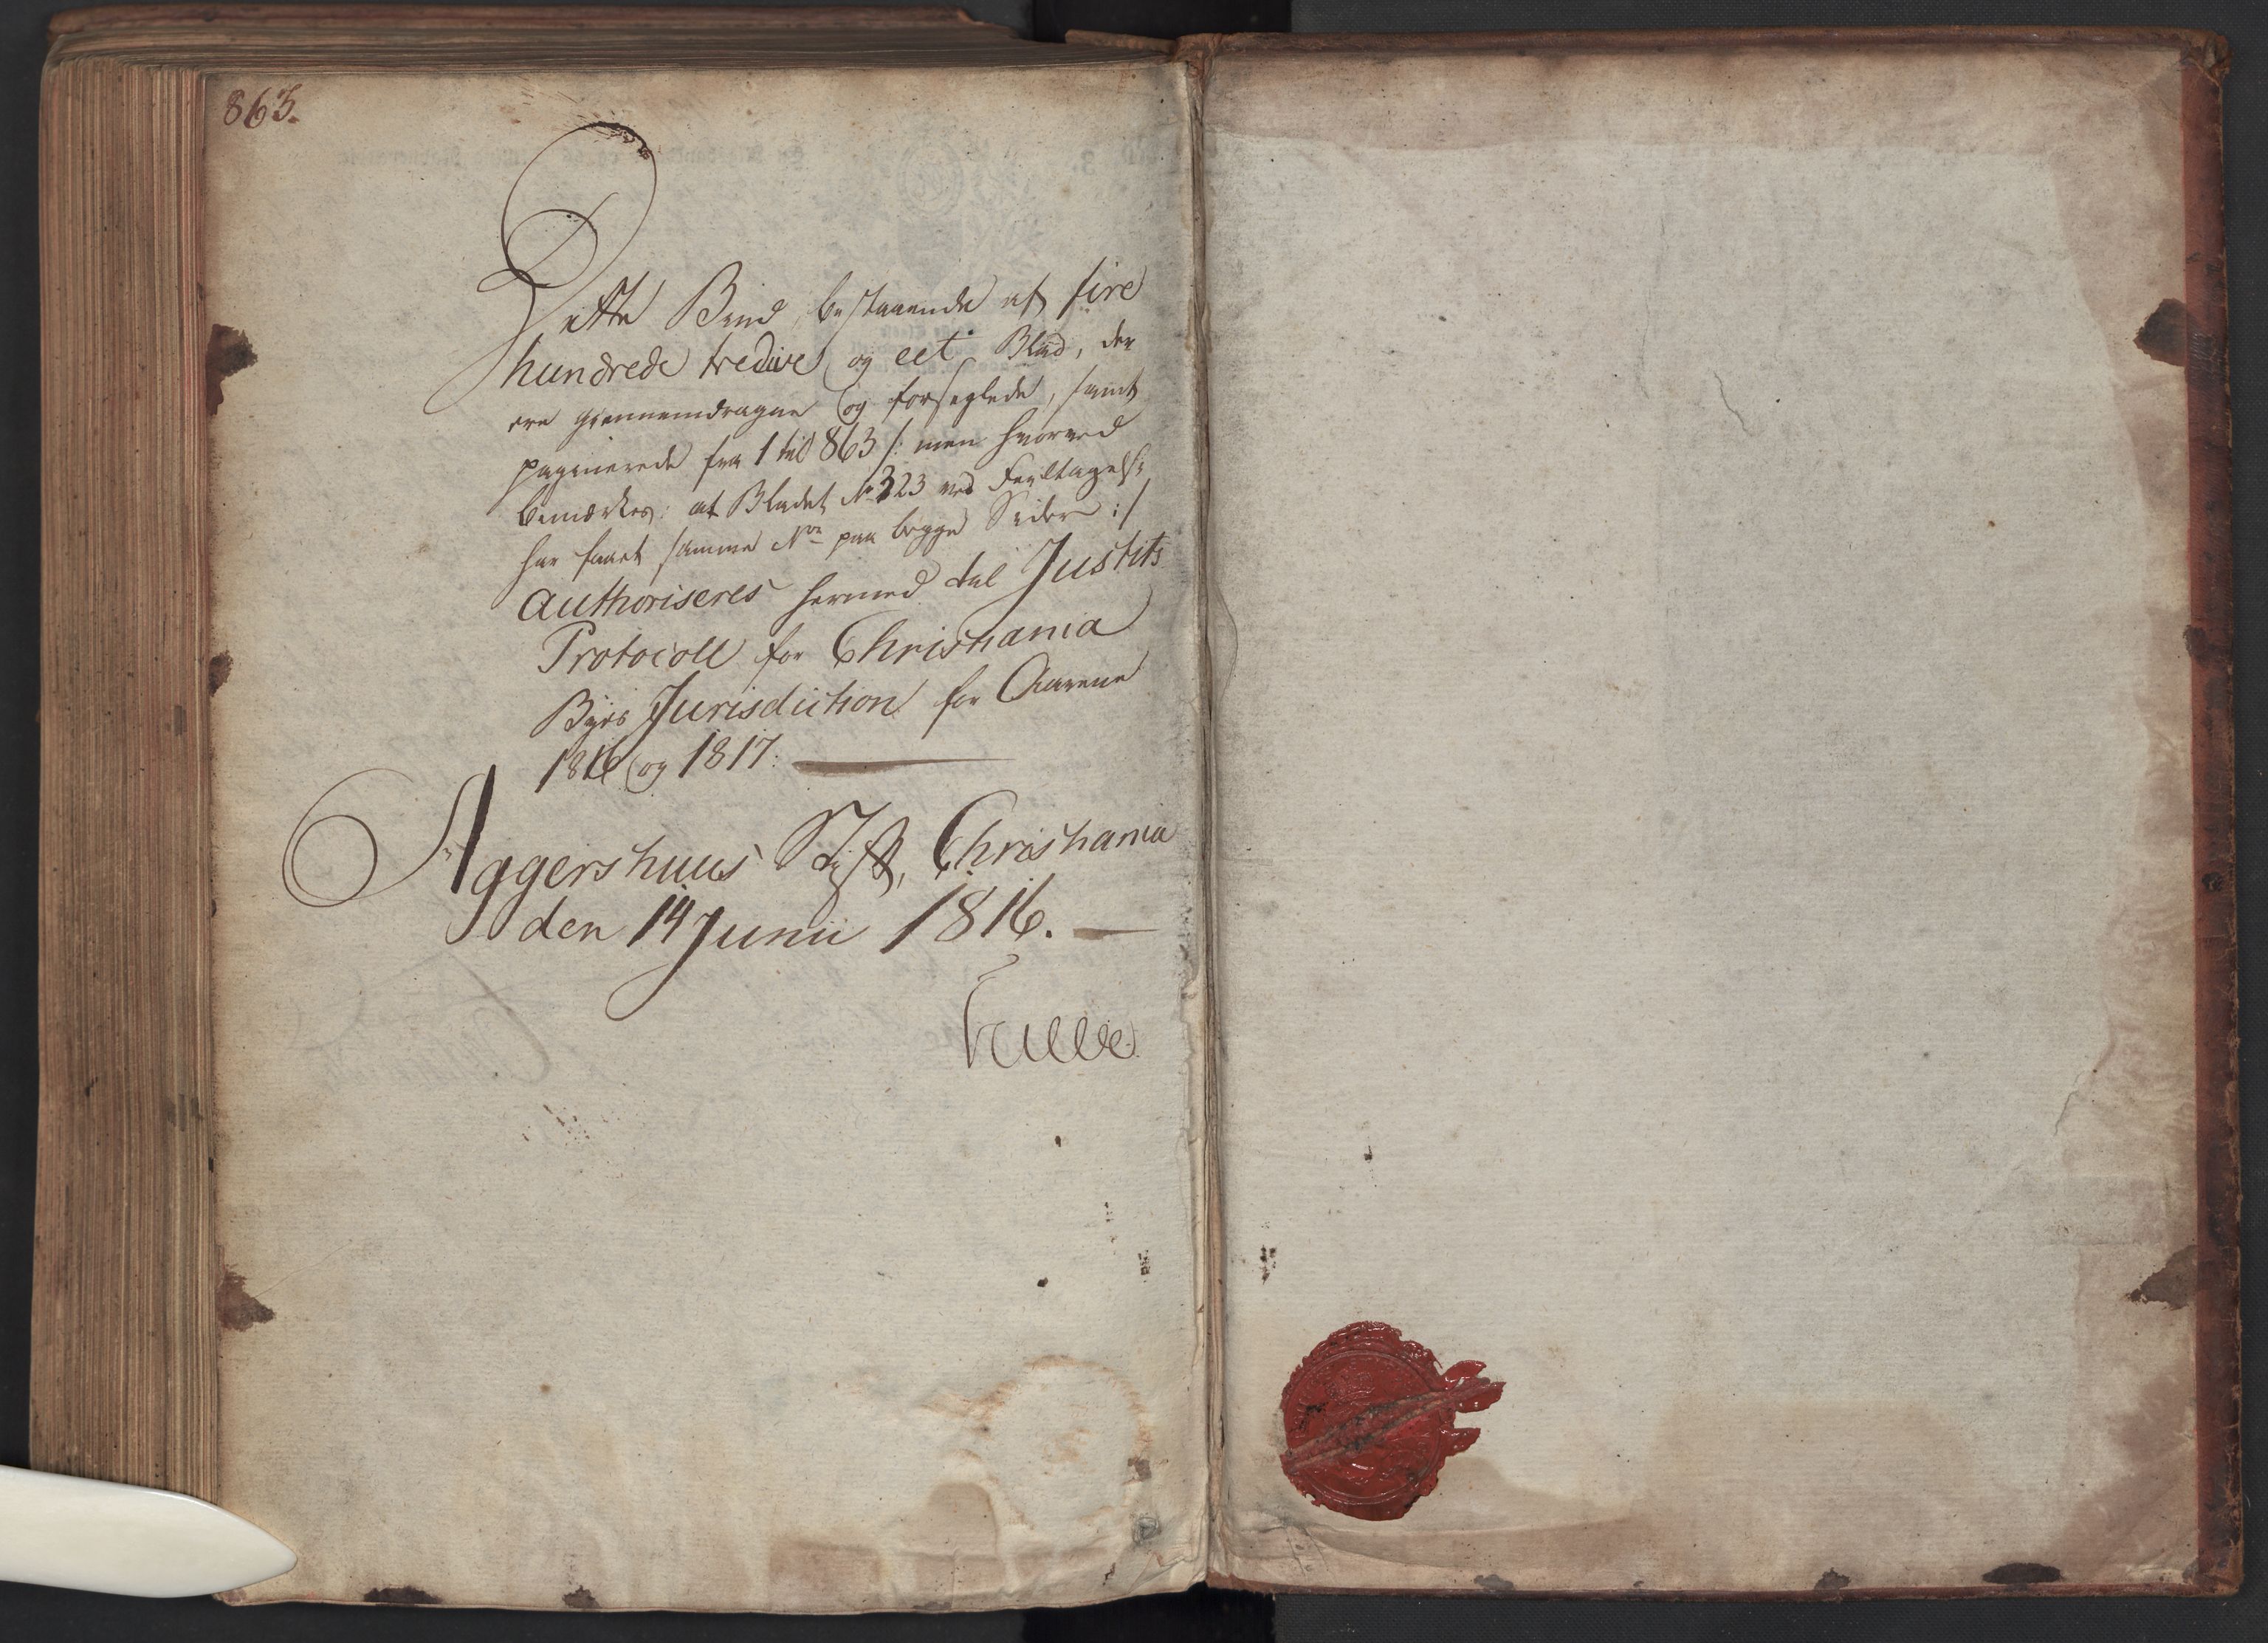 863.
Dette Bind, bestaaende af fire
hundrede tredive og eet Blad, der
ere giennemdragne og forseglede, samt
paginerede fra 1 til 863 /: men hvorved
bemærkes: at Bladet No 323 ved Feiltagelse
har faaet samme No paa begge Sider :/
authoriseres hermed til Justits
Protocoll for Christiania
Byes Jurisdiction for Aarene
1816 og 1817.
Aggershuus Stift, Christiania
den 14 Junii 1816.